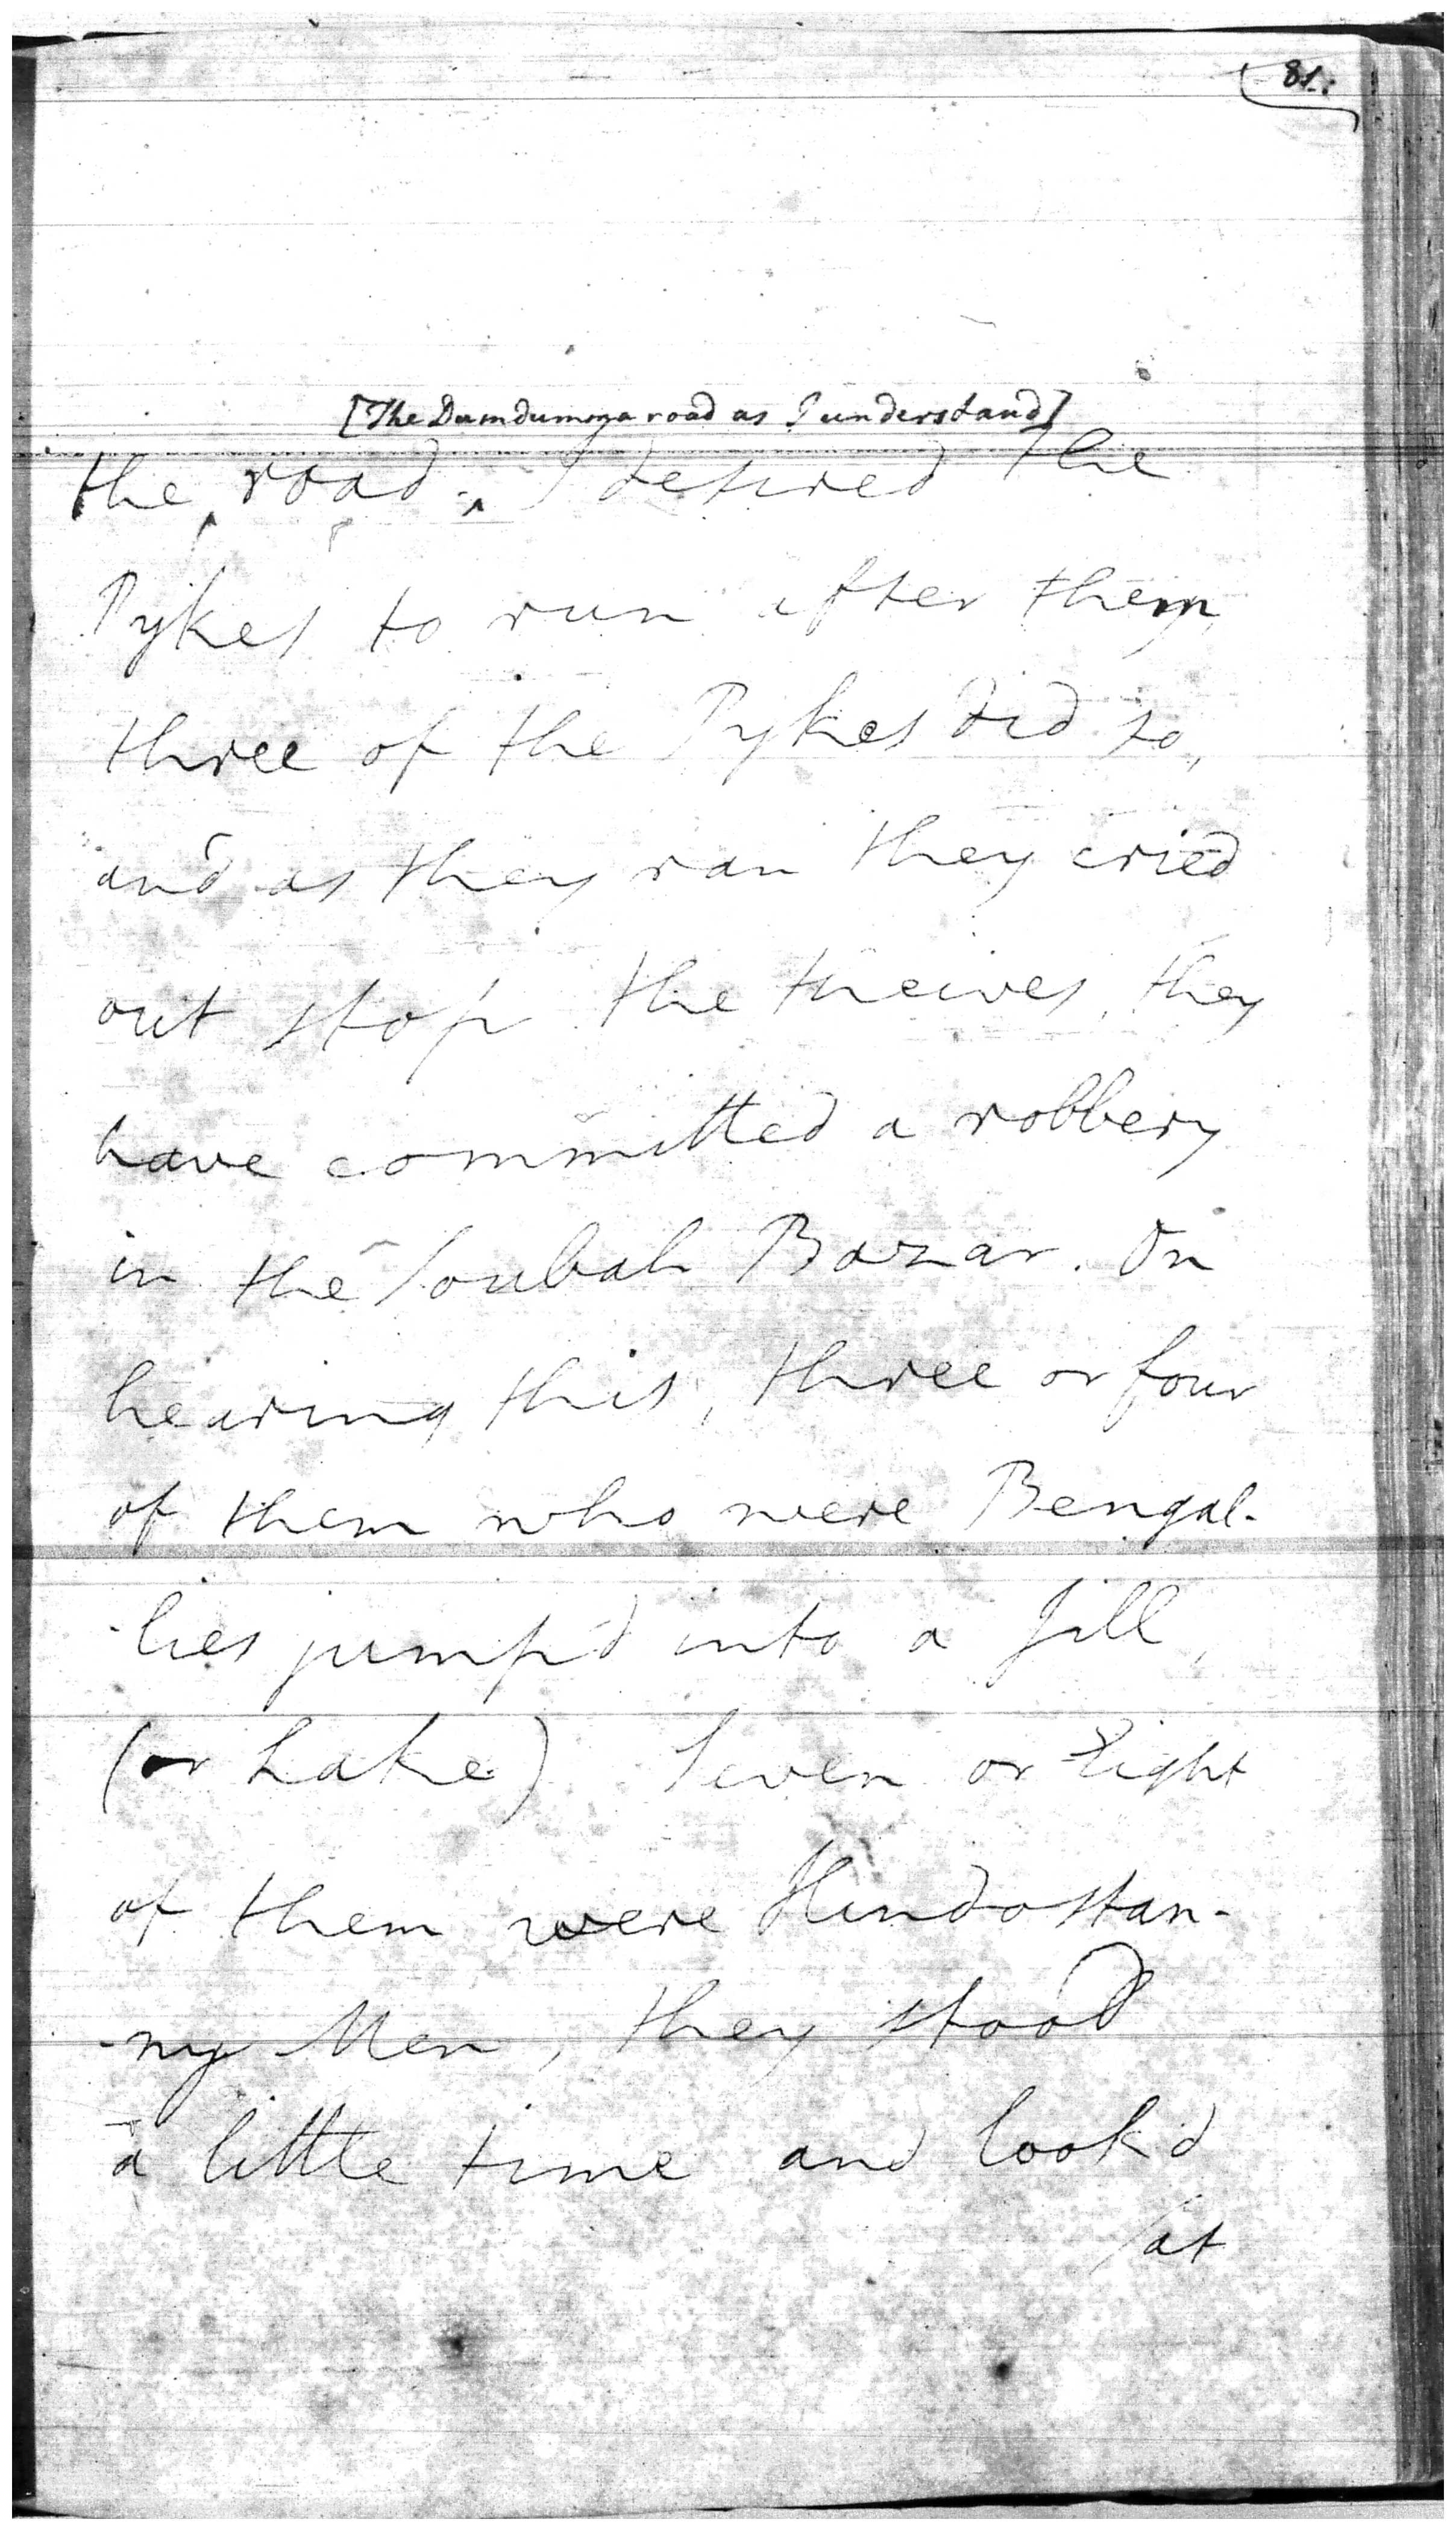 81.
[The Dumdumoya road as I understand]
the road. ‸ I desired the
Pykes to run after them,
three of the Pykes did so,
and as they ran they cried
out stop the theives, they
have committed a robbery
in the Soubah Bazar. On
hearing this, three or four
of them who were Bengal-
-lies jump'd into a Jill,
(or Lake) Seven or Eight
of them were Hindostan-
-ny Men, they stood
a little time and look'd
/at